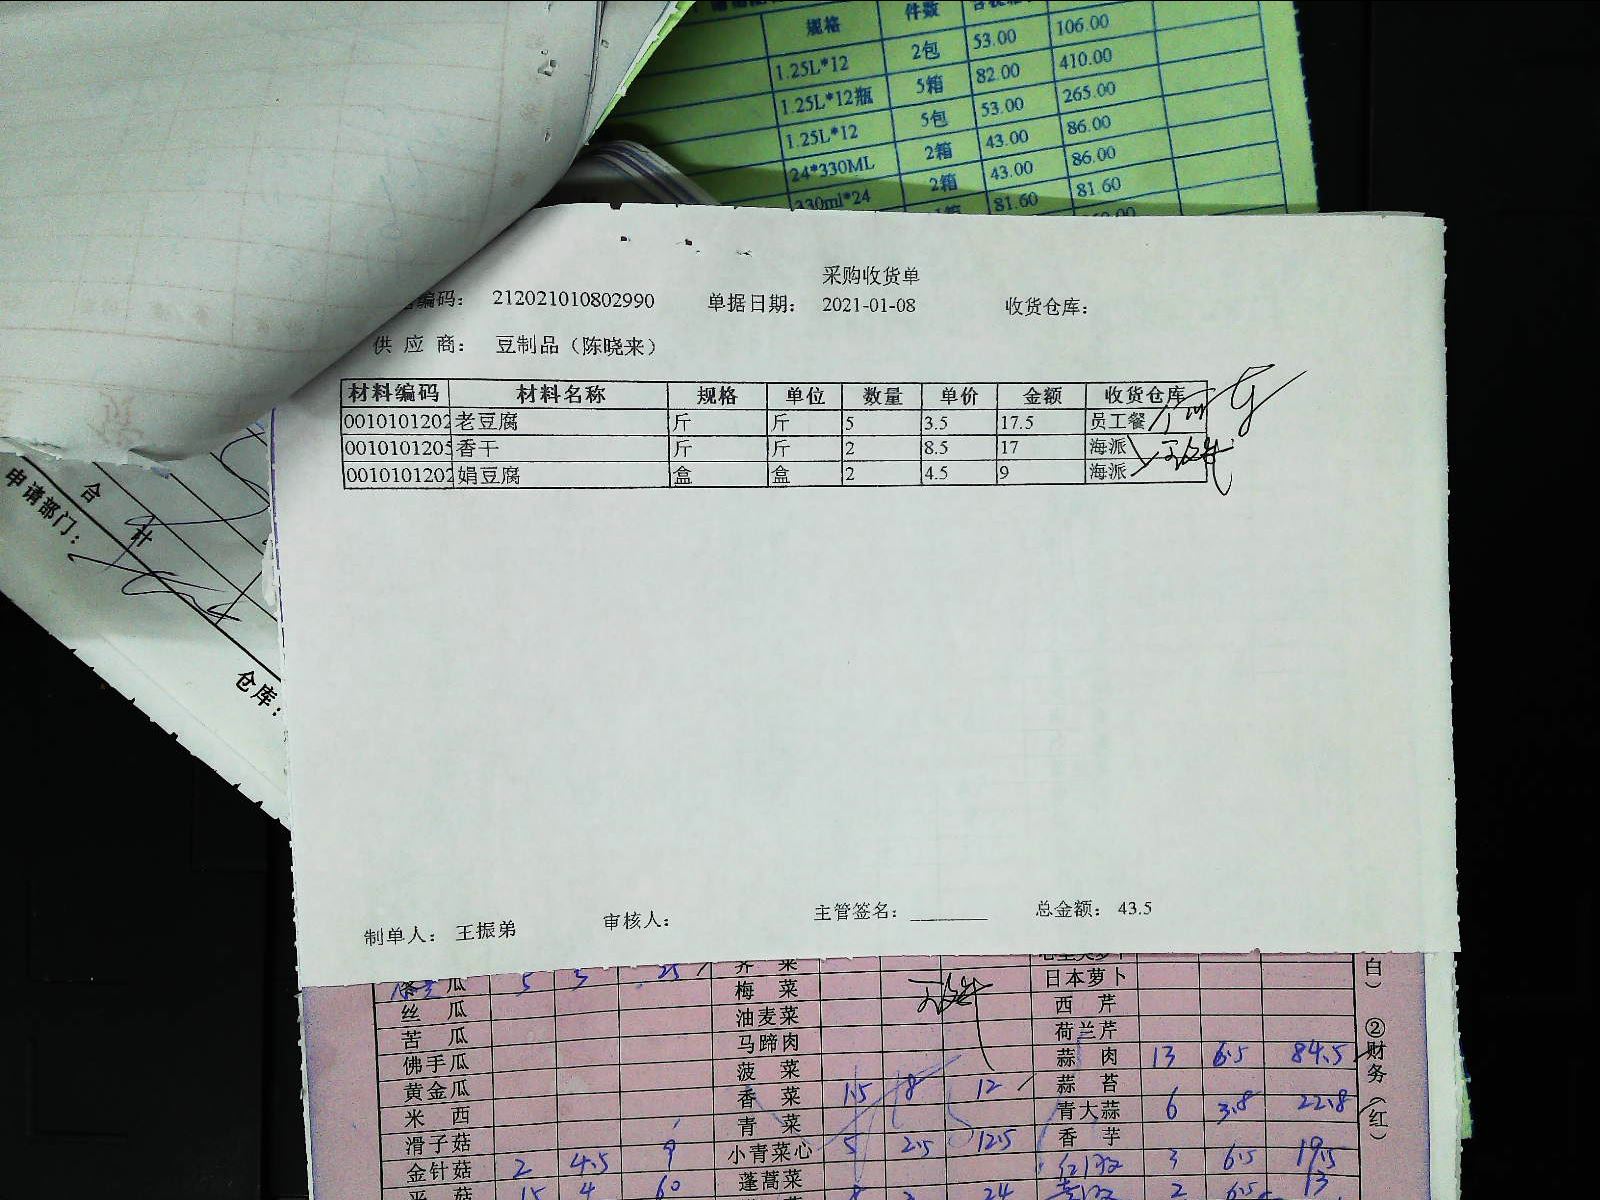 规格 件数
1.25L*12 2包 53.00 106.00
1.25L*12瓶 5箱 82.00 410.00
1.25L*12 5包 53.00 265.00
24*330ML 2箱 43.00 86.00
330ml*24 2箱 43.00 86.00
81.60 81.60
采购收货单
编码： 212021010802990 单据日期： 2021-01-08 收货仓库：
供 应 商： 豆制品（陈晓来）
材料编码 材料名称 规格 单位 数量 单价 金额 收货仓库
0010101202 老豆腐 斤 斤 5 3.5 17.5 员工餐
0010101205 香干 斤 斤 2 8.5 17 海派
0010101202 娟豆腐 盒 盒 2 4.5 9 海派
合 计
申请部门：
仓库：
制单人： 王振弟 审核人： 主管签名： 总金额： 43.5
瓜 5 3 25 荠 菜
丝 瓜 梅 菜 日本萝卜
苦 瓜 油麦菜 西 芹
佛手瓜 马蹄肉 荷兰芹
黄金瓜 菠 菜 蒜 肉 13 6.5 84.5
米 西 香 菜 1.5 8 12 蒜 苔
滑子菇 青 菜 青大蒜 6 3.8 22.8
金针菇 2 4.5 9 小青菜心 5 2.5 12.5 香 芋
菇 15 4 60 蓬蒿菜 3 6.5 19.5
24 2 6.5 13
白） ②财务（红）